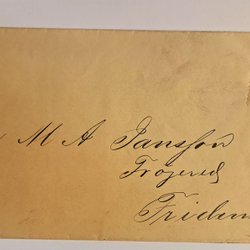 M A Jansson
Fröjered
Friden